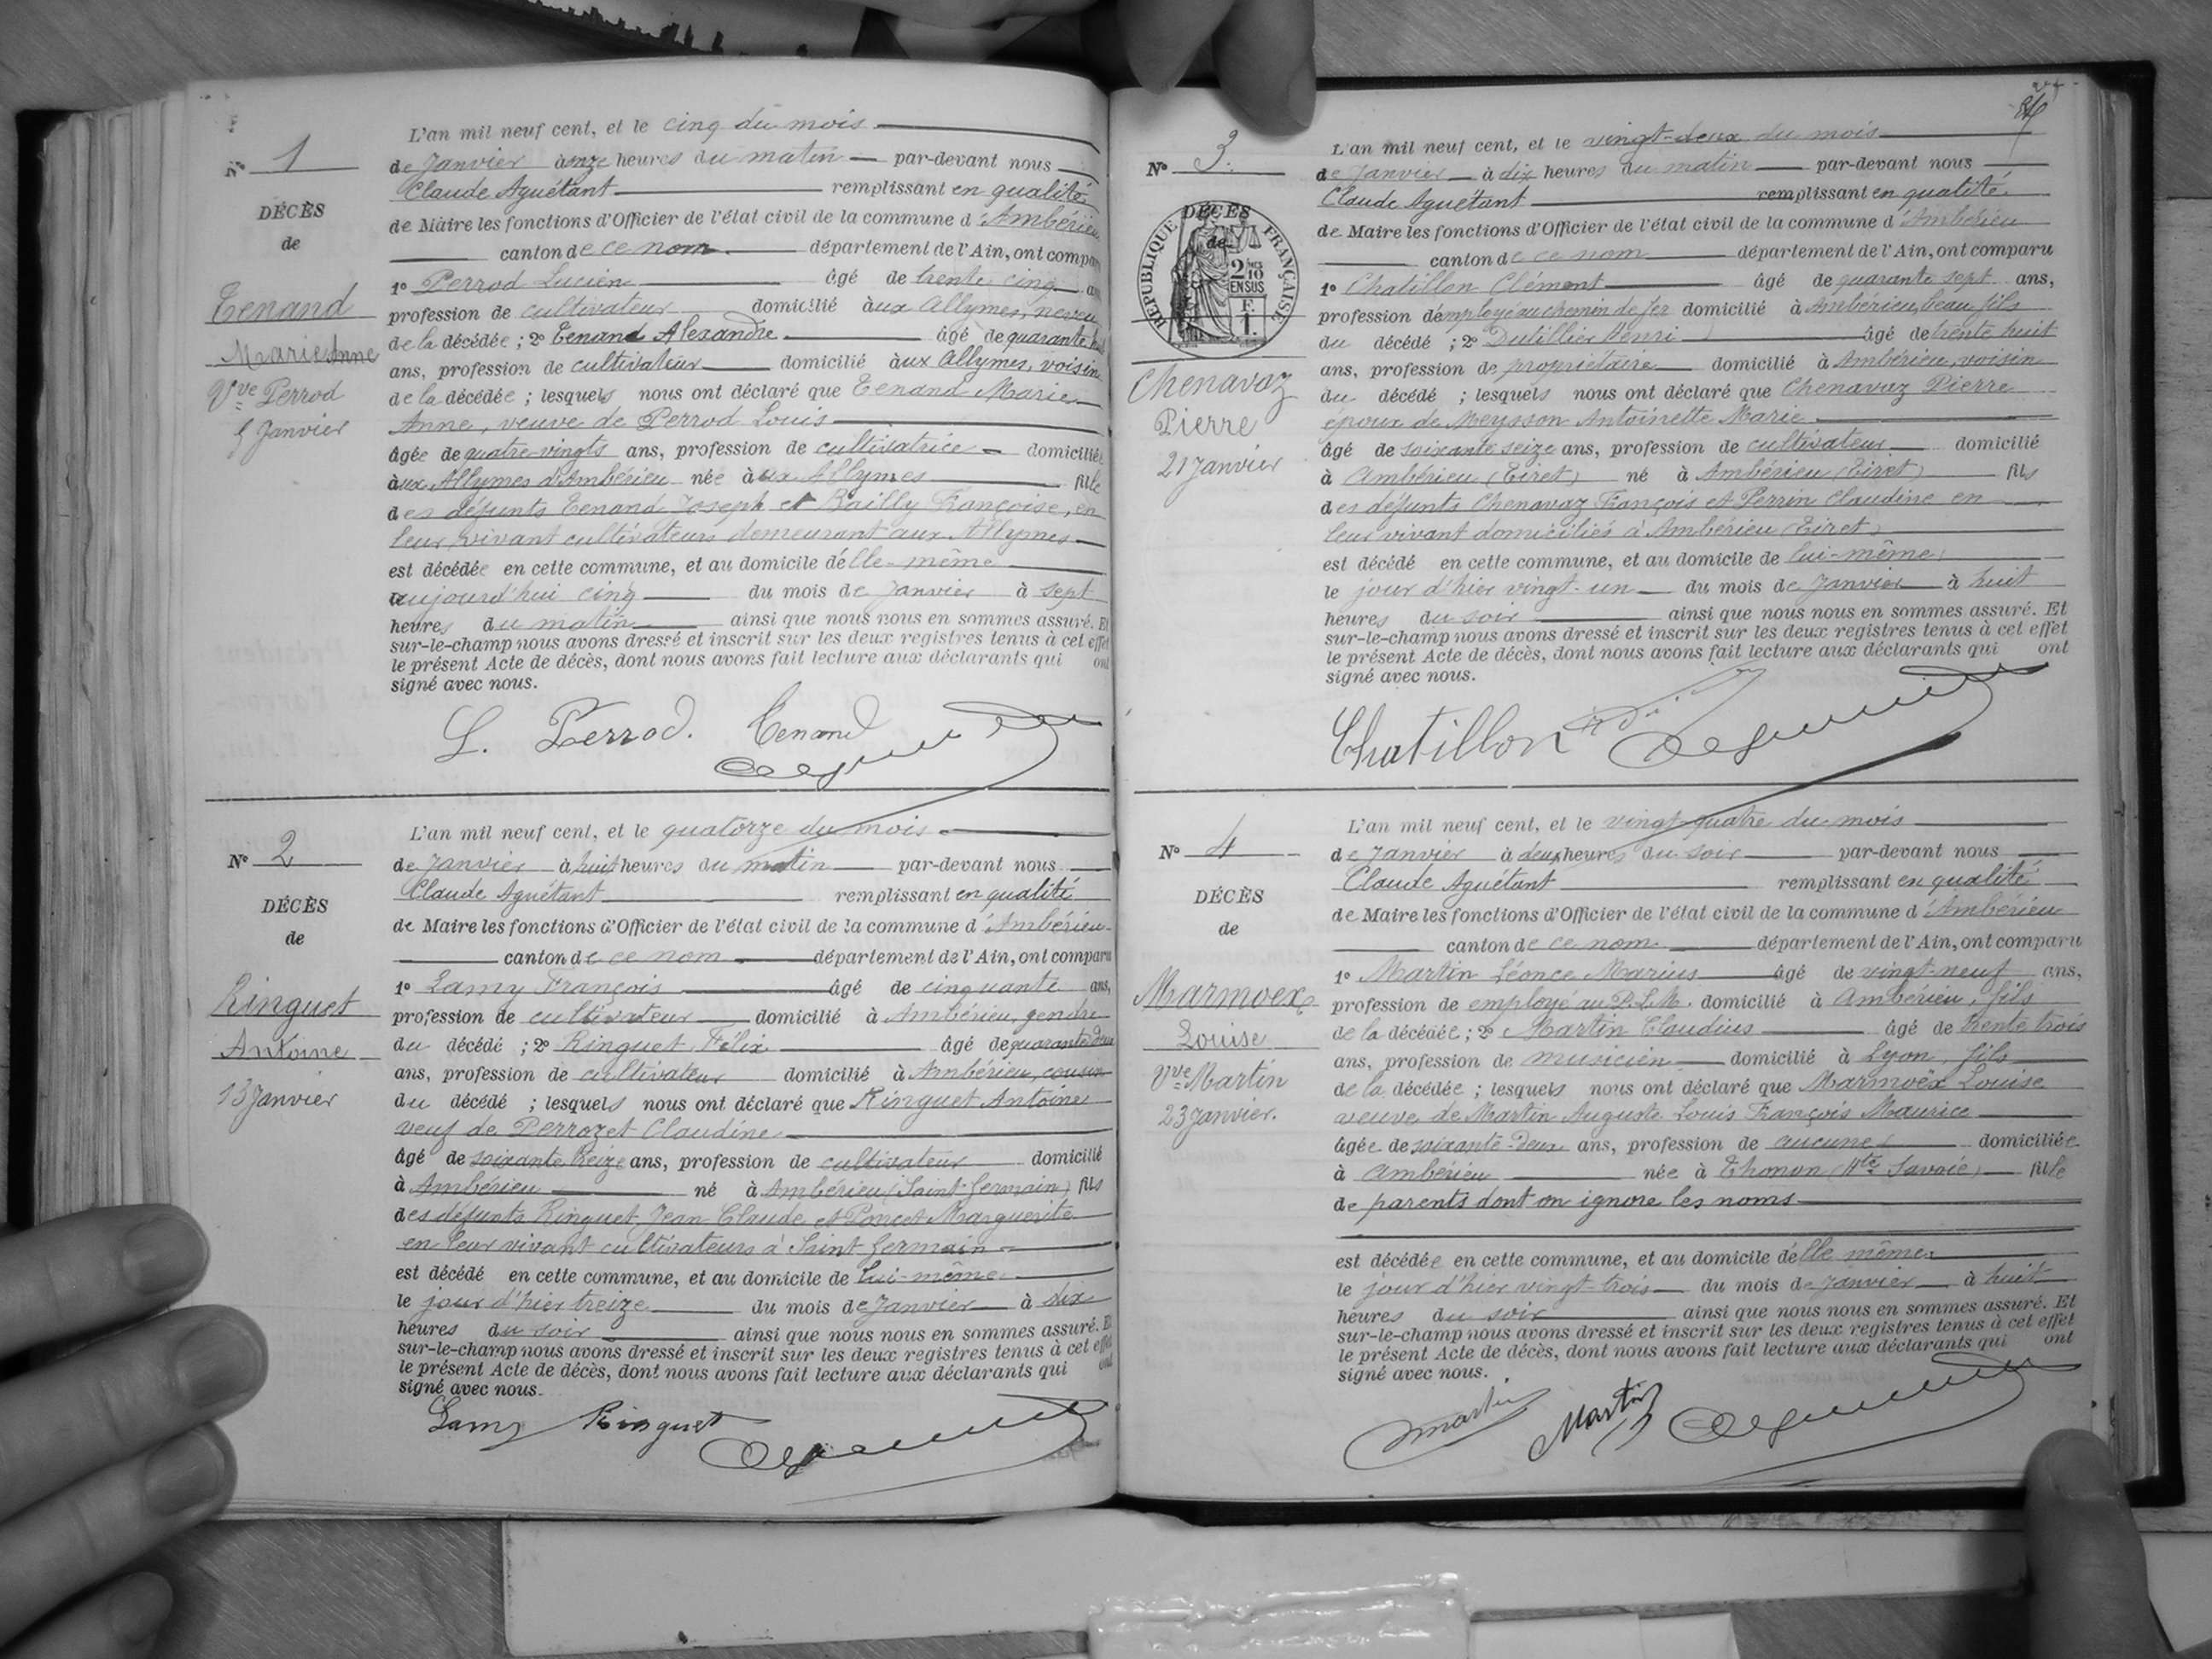 L'an mil neuf cent, et le cinq du mois
N° 1
de Janvier à onze heures du matin par-devant nous
Claude Aguétant remplissant en qualité
DÉCÈS
de Maire les fonctions d'Officier de l'état civil de la commune d'Ambérieu
de
canton de ce nom département de l'Ain, ont comparu
1° Perrod Lucien âgé de trente cinq ans
Tenand
profession de cultivateur domicilié à aux Allymes, neveu
de la décédée ; 2° Tenand Alexandre âgé de quarante huit
Marie Anne
ans, profession de cultivateur domicilié à aux Allymes, voisin
Vve Perrod
de la décédée ; lesquels nous ont déclaré que Tenand Marie
5 Janvier
Anne, veuve de Perrod Louis
âgée de quatre-vingts ans, profession de cultivatrice domiciliée
à aux Allymes d'Ambérieu née à aux Allymes fille
des défunts Tenand Joseph et Bailly Françoise, en
leur vivant cultivateurs demeurant aux Allymes
est décédée en cette commune, et au domicile d'elle-même
aujourd'hui cinq du mois de Janvier à sept
heures du matin ainsi que nous nous en sommes assuré. Et
sur-le-champ nous avons dressé et inscrit sur les deux registres tenus à cet effet
le présent Acte de décès, dont nous avons fait lecture aux déclarants qui ont
signé avec nous.
L. Perrod. Tenand
L'an mil neuf cent, et le quatorze du mois
N° 2
de Janvier à huit heures du matin par-devant nous
Claude Aguétant remplissant en qualité
DÉCÈS
de Maire les fonctions d'Officier de l'état civil de la commune d'Ambérieu
de
canton de ce nom département de l'Ain, ont comparu
1° Lamy François âgé de cinquante ans,
Ringuet
profession de cultivateur domicilié à Ambérieu, gendre
du décédé ; 2° Ringuet Félix âgé de quarante deux
Antoine
ans, profession de cultivateur domicilié à Ambérieu, cousin
13 Janvier
du décédé ; lesquels nous ont déclaré que Ringuet Antoine
veuf de Perrozet Claudine
âgé de soixante treize ans, profession de cultivateur domicilié
à Ambérieu né à Ambérieu (Saint-Germain) fils
des défunts Ringuet Jean-Claude et Poncet Marguerite
en leur vivant cultivateurs à Saint Germain
est décédé en cette commune, et au domicile de lui-même
le jour d'hier treize du mois de Janvier à dix
heures du soir ainsi que nous nous en sommes assuré. Et
sur-le-champ nous avons dressé et inscrit sur les deux registres tenus à cet effet
le présent Acte de décès, dont nous avons fait lecture aux déclarants qui ont
signé avec nous.
Lamy Ringuet
L'an mil neuf cent, et le vingt-deux du mois
N° 3.
de Janvier à dix heures du matin par-devant nous
Claude Aguétant remplissant en qualité
DÉCÈS
de
RÉPUBLIQUE FRANÇAISE
2/10 EN SUS
F. 1.
de Maire les fonctions d'Officier de l'état civil de la commune d'Ambérieu
canton de ce nom département de l'Ain, ont comparu
1° Chatillon Clément âgé de quarante sept ans,
profession d'employé au chemin de fer domicilié à Ambérieu, beau fils
du décédé ; 2° Dutillier Henri âgé de trente huit
ans, profession de propriétaire domicilié à Ambérieu, voisin
Chenavaz
du décédé ; lesquels nous ont déclaré que Chenavaz Pierre
Pierre
époux de Meysson Antoinette Marie
âgé de soixante seize ans, profession de cultivateur domicilié
21 Janvier
à Ambérieu (Tiret) né à Ambérieu (Tiret) fils
des défunts Chenavaz François et Perrin Claudine en
leur vivant domiciliés à Ambérieu (Tiret)
est décédé en cette commune, et au domicile de lui-même
le jour d'hier vingt-un du mois de Janvier à huit
heures du soir ainsi que nous nous en sommes assuré. Et
sur-le-champ nous avons dressé et inscrit sur les deux registres tenus à cet effet
le présent Acte de décès, dont nous avons fait lecture aux déclarants qui ont
signé avec nous.
Chatillon
L'an mil neuf cent, et le vingt-quatre du mois
N° 4
de Janvier à deux heures du soir par-devant nous
Claude Aguétant remplissant en qualité
DÉCÈS
de Maire les fonctions d'Officier de l'état civil de la commune d'Ambérieu
de
canton de ce nom département de l'Ain, ont comparu
1° Martin Léonce Marius âgé de vingt-neuf ans,
Marmoex
profession de employé au P.L.M. domicilié à Ambérieu, fils
de la décédée ; 2° Martin Claudius âgé de trente trois
Louise
ans, profession de musicien domicilié à Lyon, fils
Vve Martin
de la décédée ; lesquels nous ont déclaré que Marmoëx Louise
23 Janvier.
veuve de Martin Auguste Louis François Maurice
âgée de soixante-deux ans, profession de aucune domiciliée
à Ambérieu née à Thonon (Hte Savoie) fille
de parents dont on ignore les noms
est décédée en cette commune, et au domicile d'elle même
le jour d'hier vingt-trois du mois de Janvier à huit
heures du soir ainsi que nous nous en sommes assuré. Et
sur-le-champ nous avons dressé et inscrit sur les deux registres tenus à cet effet
le présent Acte de décès, dont nous avons fait lecture aux déclarants qui ont
signé avec nous.
Martin Martin